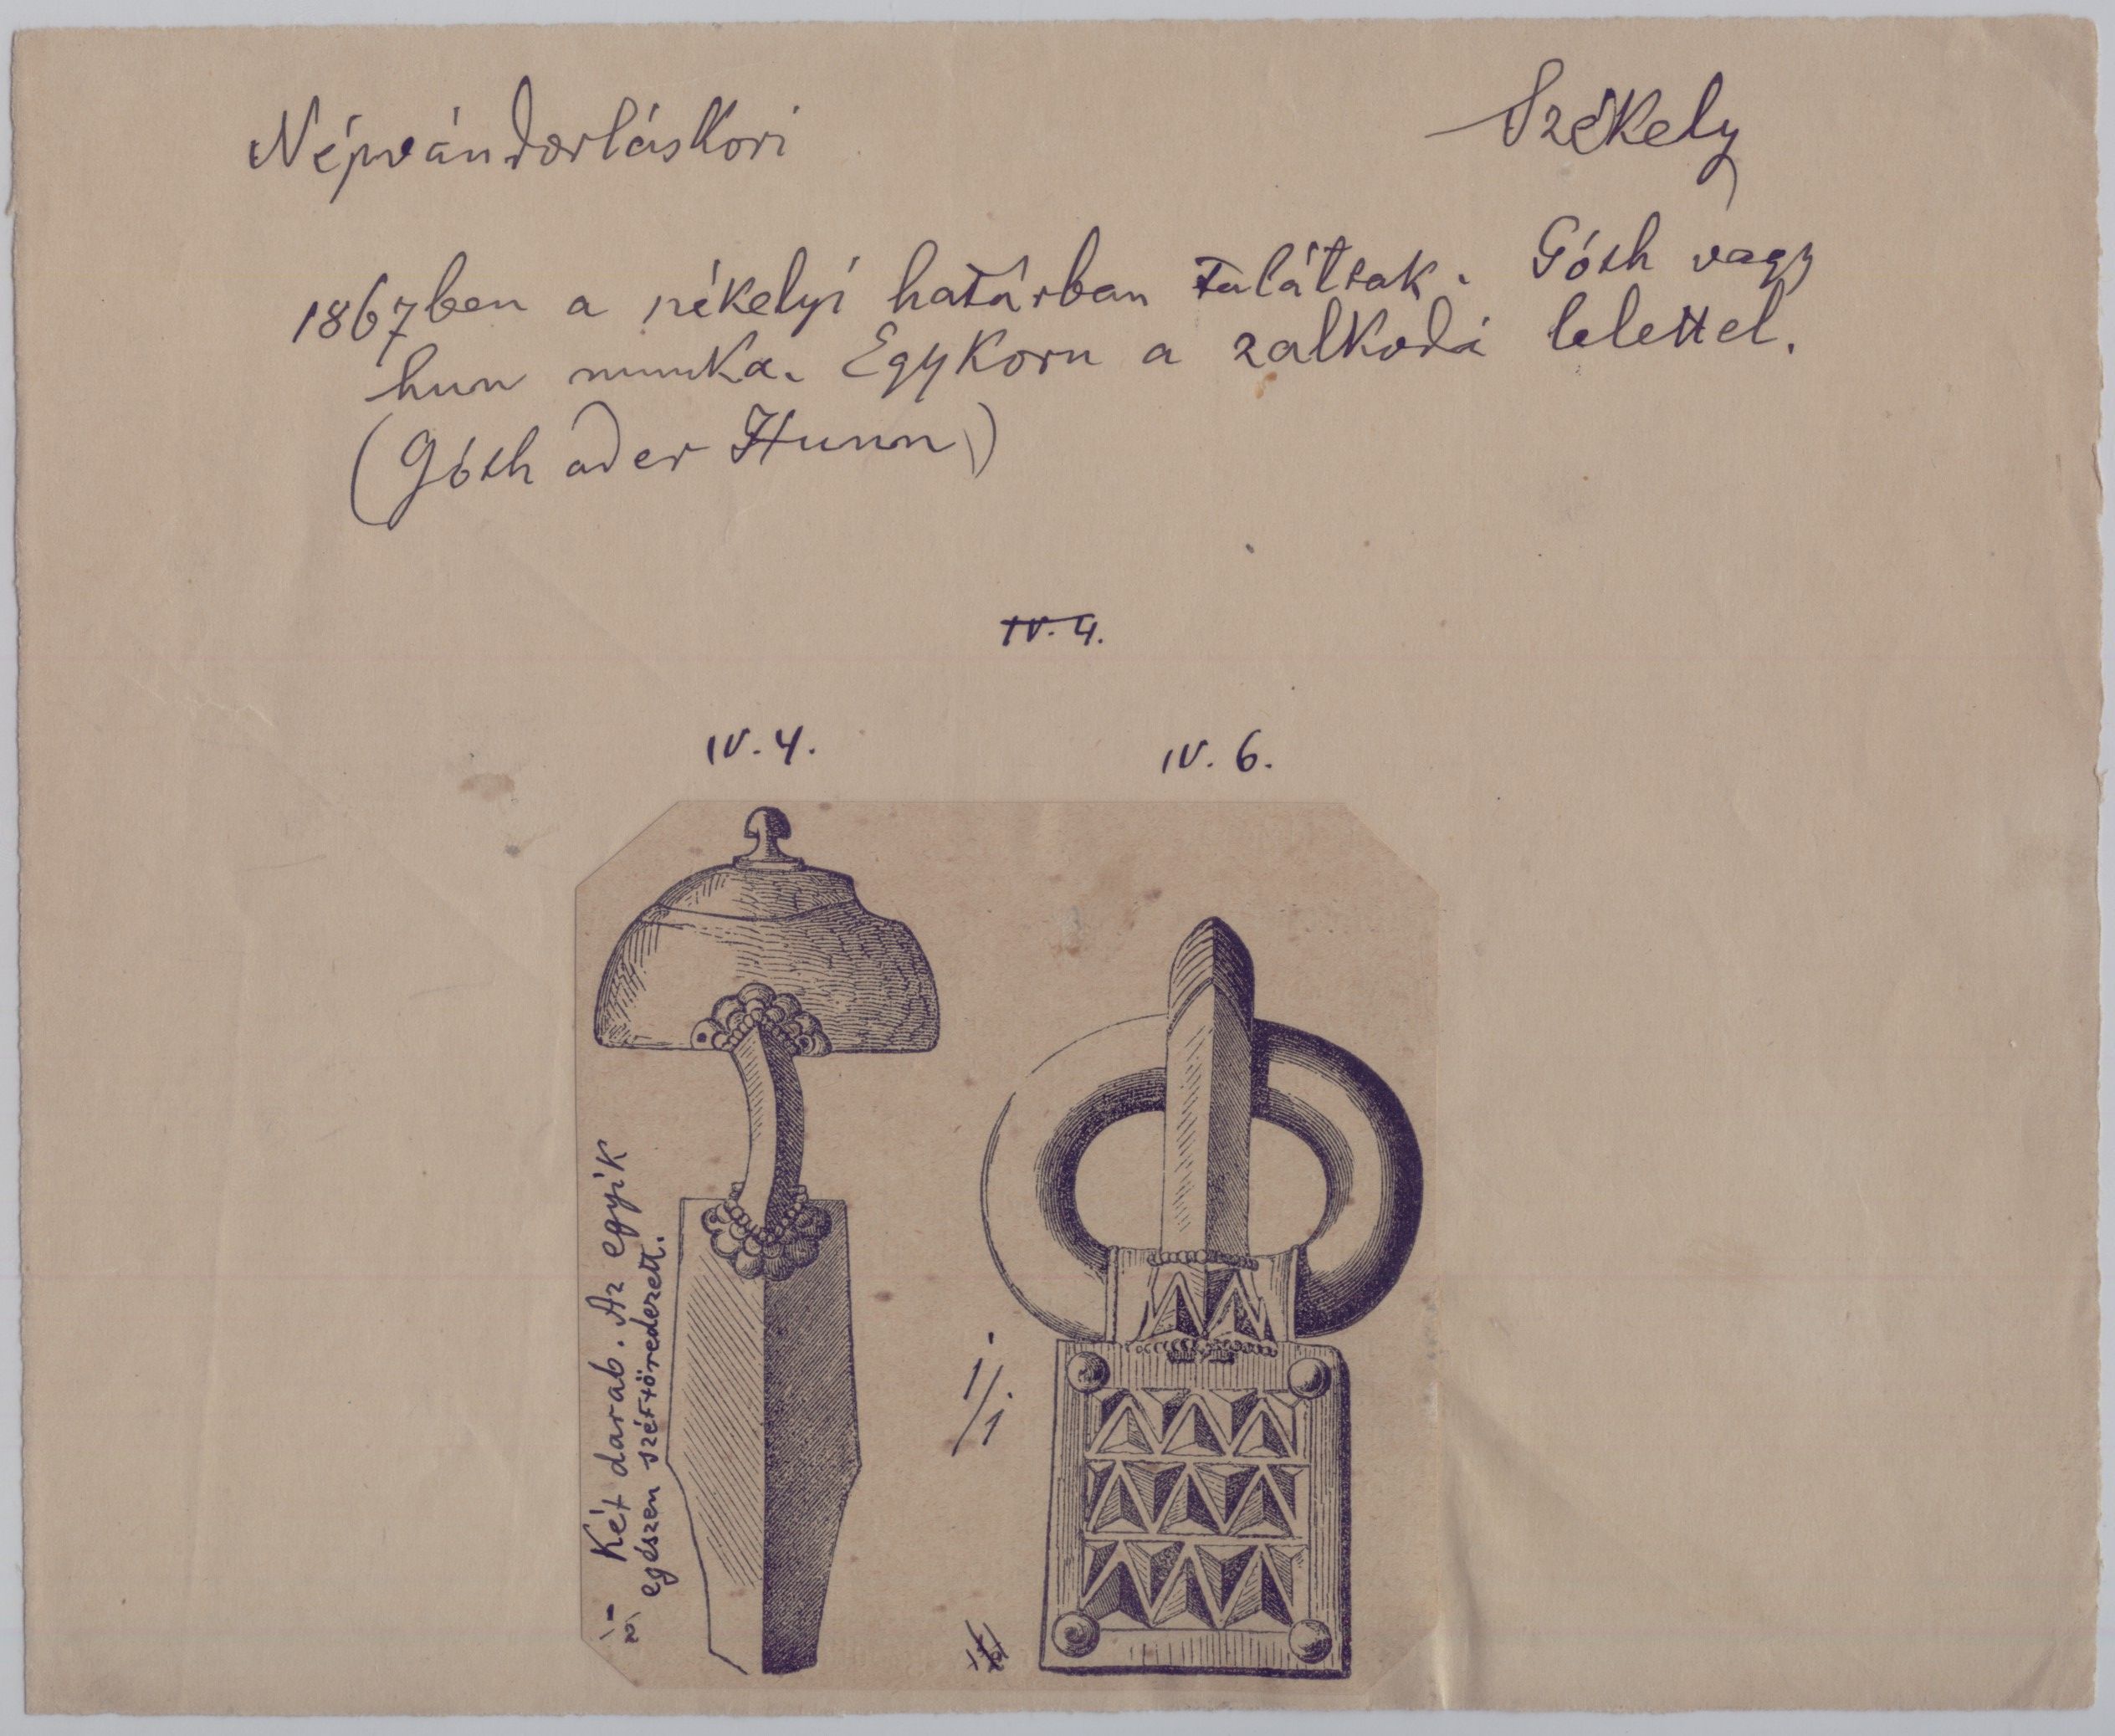 Népvándorláskori
Székely
1867ben a székelyi határban találtak. Góth vagy
hun munka. Egykoru a zalkodi lelettel.
(Góth oder Hunn)
IV. 4.
IV. 4.
IV. 6.
Két darab. Az egyik
egészen széttöredezett.
1/2
1/1